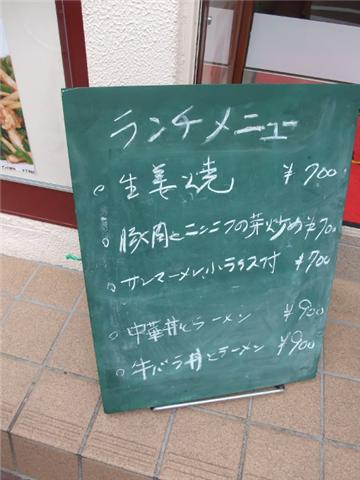 ランチメニュー
○ 生姜焼 ¥700
○ 豚肉とニンニクの芽炒め ¥70
○ サンマーメン 小ライス付 ¥700
○ 中華丼とラーメン ¥900
○ 牛バラ丼とラーメン ¥900